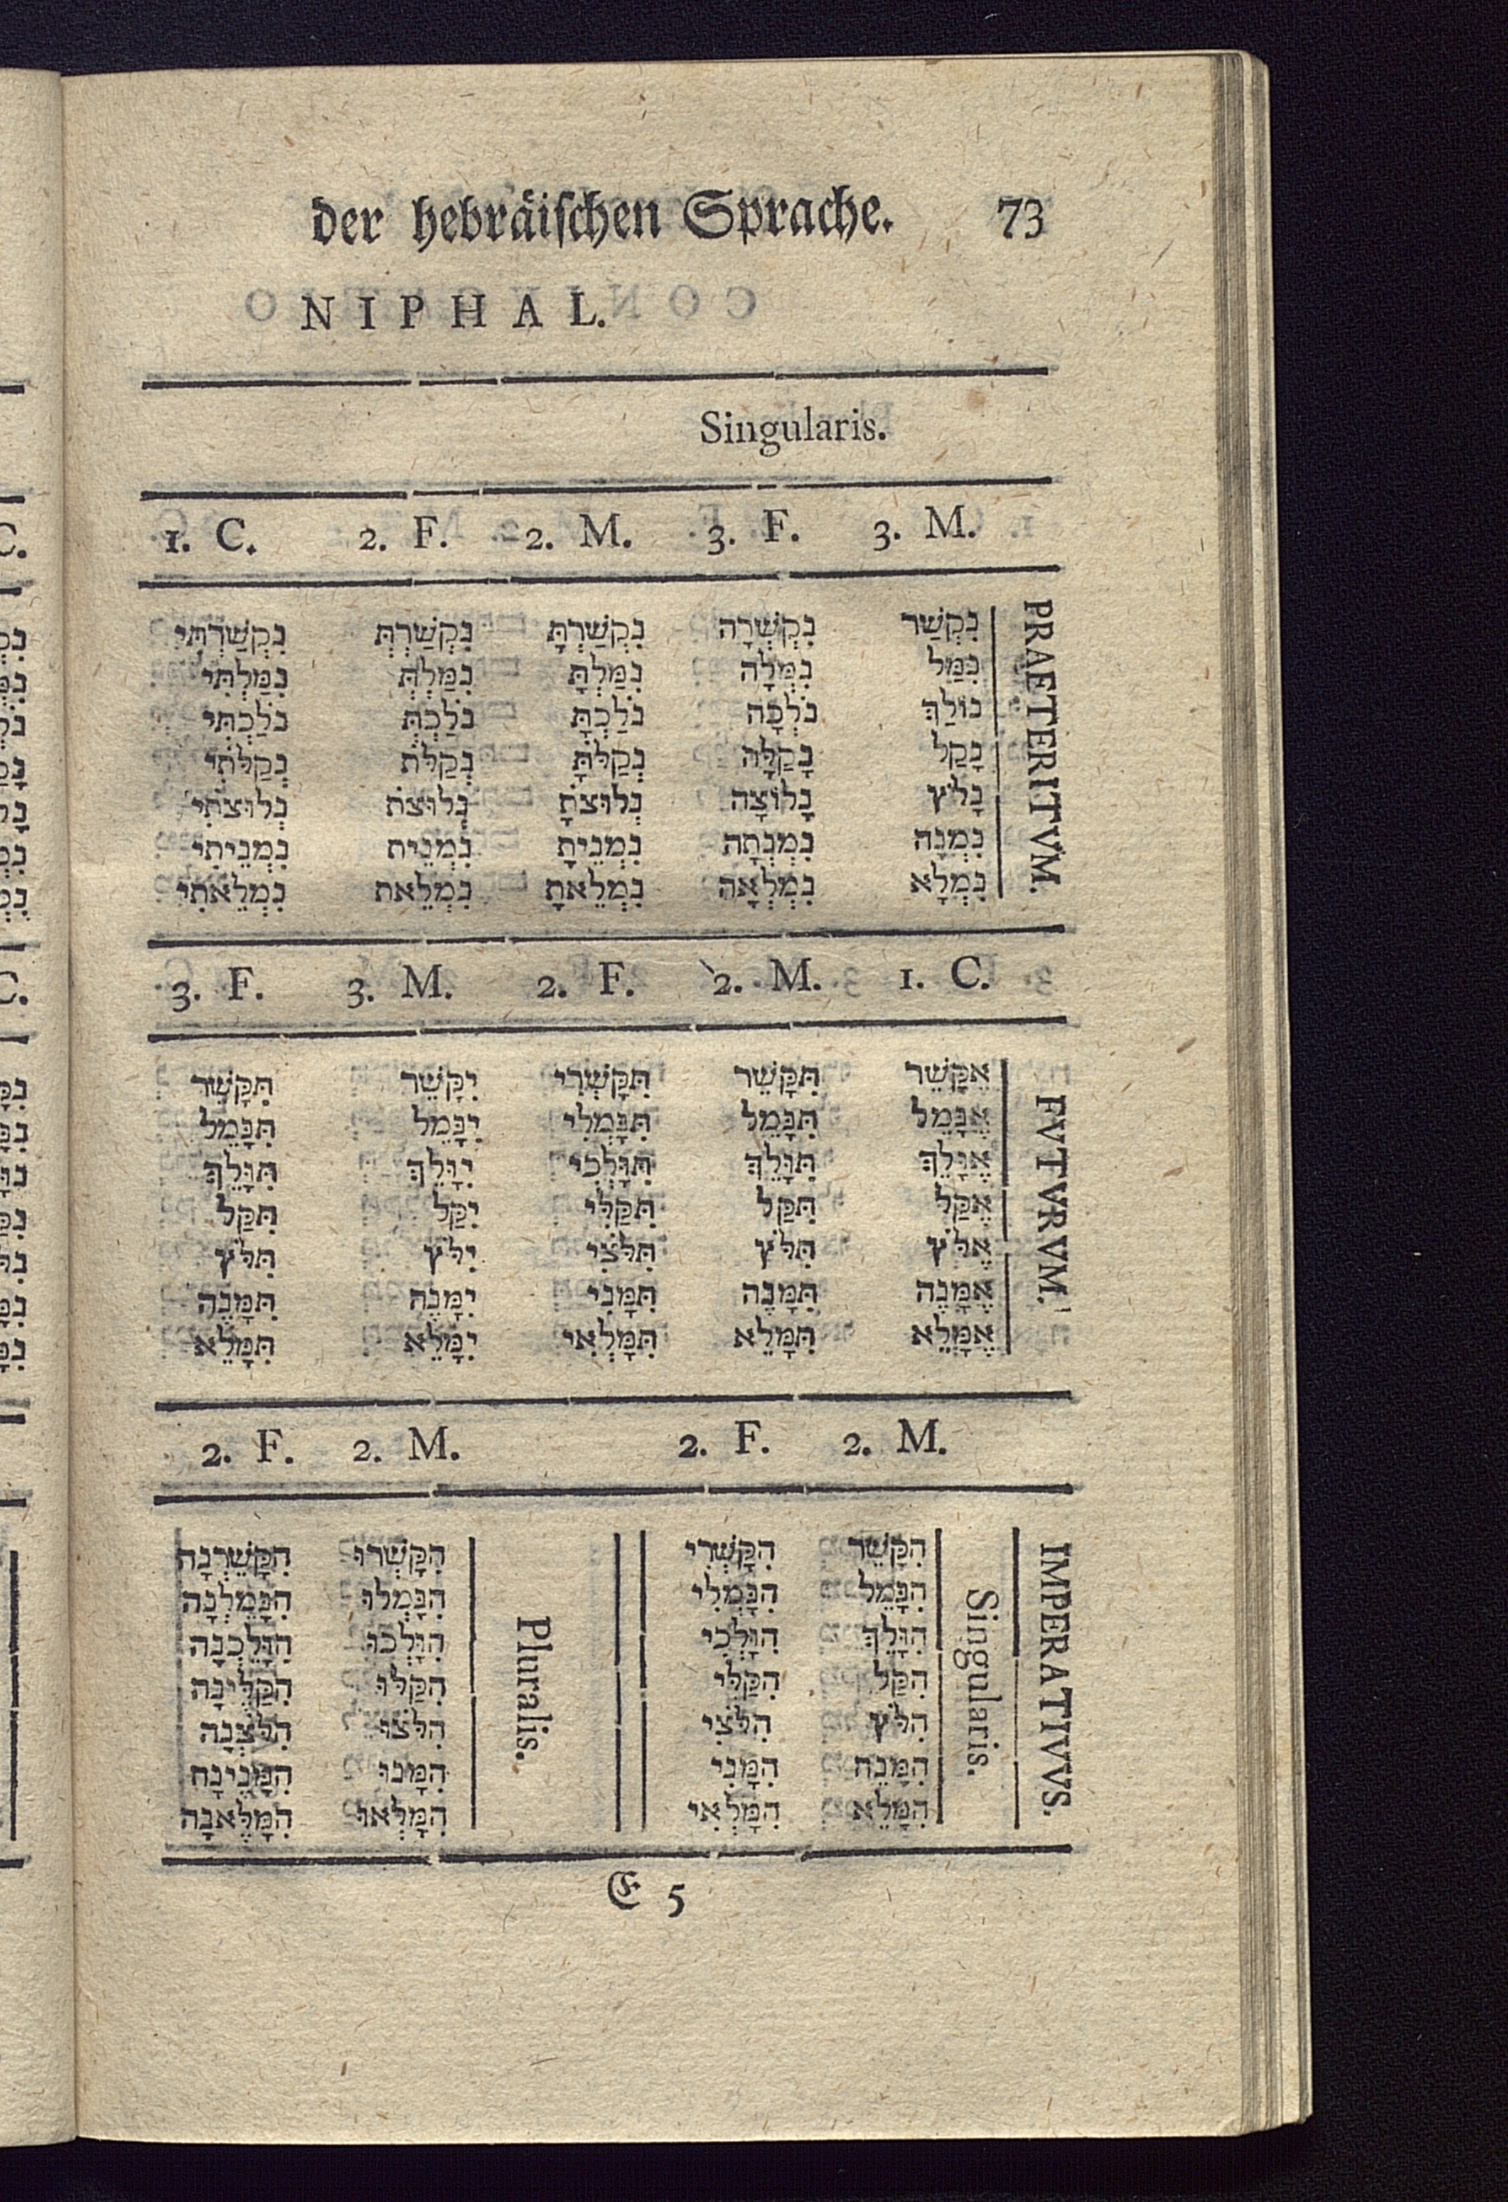 der hebräischen Sprache. 73
NIPHAL.
Singularis.
1. C. 2. F. 2. M. 3. F. 3. M.
PRAETERITVM.
נִקְשַׁר נִקְשְׁרָה נִקְשַׁרְתָּ נִקְשַׁרְתְּ נִקְשַׁרְתִּי
נִמַּל נִמְּלָה נִמַּלְתָּ נִמַּלְתְּ נִמַּלְתִּי
נוֹלַךְ נֹלְכָה נֹלַכְתָּ נֹלַכְתְּ נֹלַכְתִּי
נָקַל נָקַלָּה נְקַלֹּתָ נְקַלֹּת נְקַלֹּתִי
נָלֹץ נָלוֹצָה נְלוּצֹתָ נְלוּצֹת נְלוּצֹתִי
נִמְנָה נִמְנְתָה נִמְנֵיתָ נִמְנֵית נִמְנֵיתִי
נִמְלָא נִמְלְאָה נִמְלֵאתָ נִמְלֵאת נִמְלֵאתִי
3. F. 3. M. 2. F. 2. M. 1. C.
FVTVRVM.
אֶקָּשֵׁר תִּקָּשֵׁר תִּקָּשְׁרִי יִקָּשֵׁר תִּקָּשֵׁר
אֶנָּמֵל תִּנָּמֵל תִּנָּמְלִי יִנָּמֵל תִּנָּמֵל
אֶוָּלֵךְ תִּוָּלֵךְ תִּוָּלְכִי יִוָּלֵךְ תִּוָּלֵךְ
אֶקַּל תִּקַּל תִּקַּלִּי יִקַּל תִּקַּל
אֶלֹּץ תִּלֹּץ תִּלֹּצִי יִלֹּץ תִּלֹּץ
אֶמָּנֶה תִּמָּנֶה תִּמָּנִי יִמָּנֶה תִּמָּנֶה
אֶמָּלֵא תִּמָּלֵא תִּמָּלְאִי יִמָּלֵא תִּמָּלֵא
2. F. 2. M. 2. F. 2. M.
IMPERATIVVS.
Singularis.
הִקָּשֵׁר הִקָּשְׁרִי
הִנָּמֵל הִנָּמְלִי
הִוָּלֵךְ הִוָּלְכִי
הִקַּל הִקַּלִּי
הִלֹּץ הִלֹּצִי
הִמָּנֵה הִמָּנִי
הִמָּלֵא הִמָּלְאִי
Pluralis.
הִקָּשְׁרוּ הִקָּשֵׁרְנָה
הִנָּמְלוּ הִנָּמֵלְנָה
הִוָּלְכוּ הִוָּלֵכְנָה
הִקַּלּוּ הִקַּלֶּינָה
הִלֹּצוּ הִלֹּצְנָה
הִמָּנוּ הִמָּנֶינָה
הִמָּלְאוּ הִמָּלֶאנָה
E 5